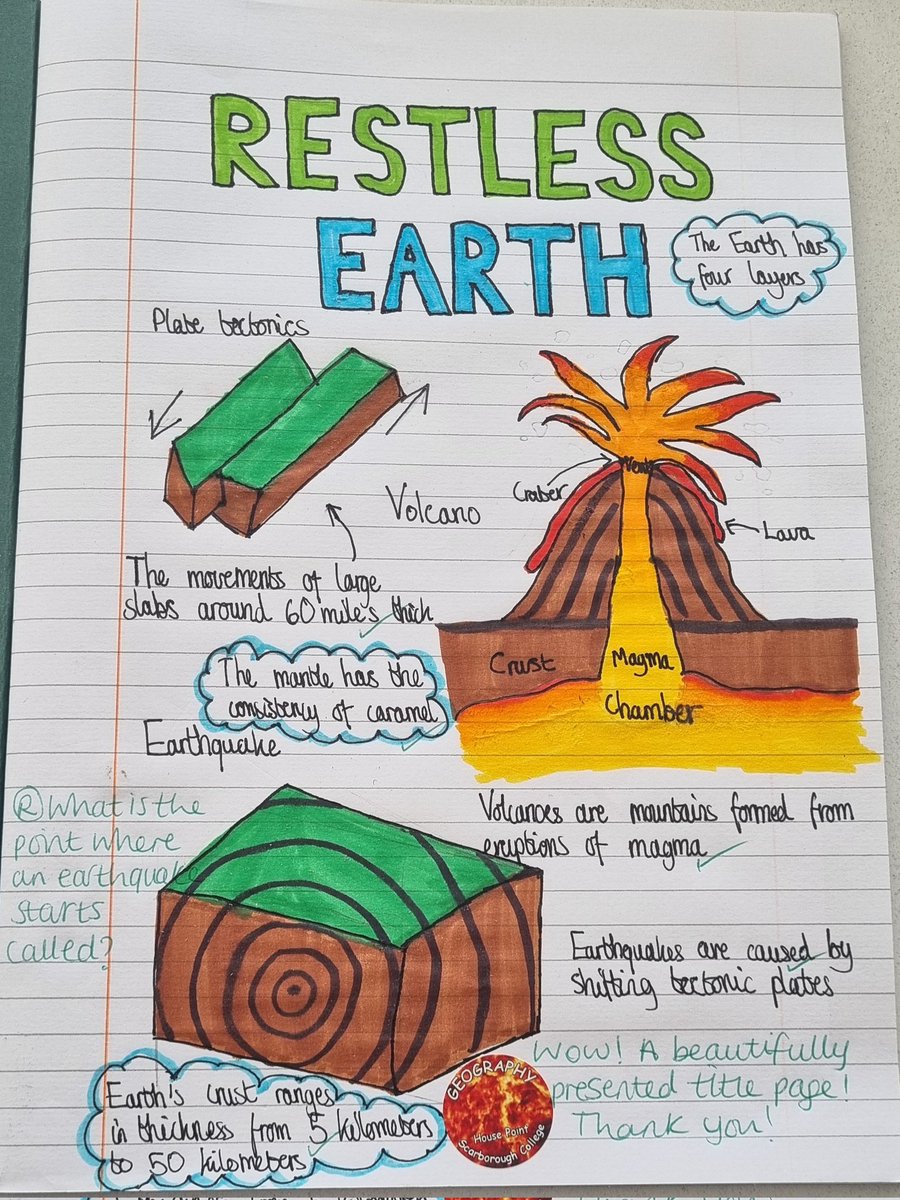 RESTLESS
EARTH
The Earth has
four layers
Plate tectonics
Vent
Crater
Lava
Volcano
The movements of large
slabs around 60 mile's thick
Crust
Magma
Chamber
The mantle has the
consistency of caramel
Earthquake
Volcanoes are mountains formed from
eruptions of magma
R What is the
point where
an earthquake
starts
called?
Earthquakes are caused by
shifting tectonic plates
Earth's crust ranges
in thickness from 5 kilometers
to 50 kilometers
GEOGRAPHY
House Point
Scarborough College
Wow! A beautifully
presented title page!
Thank you!